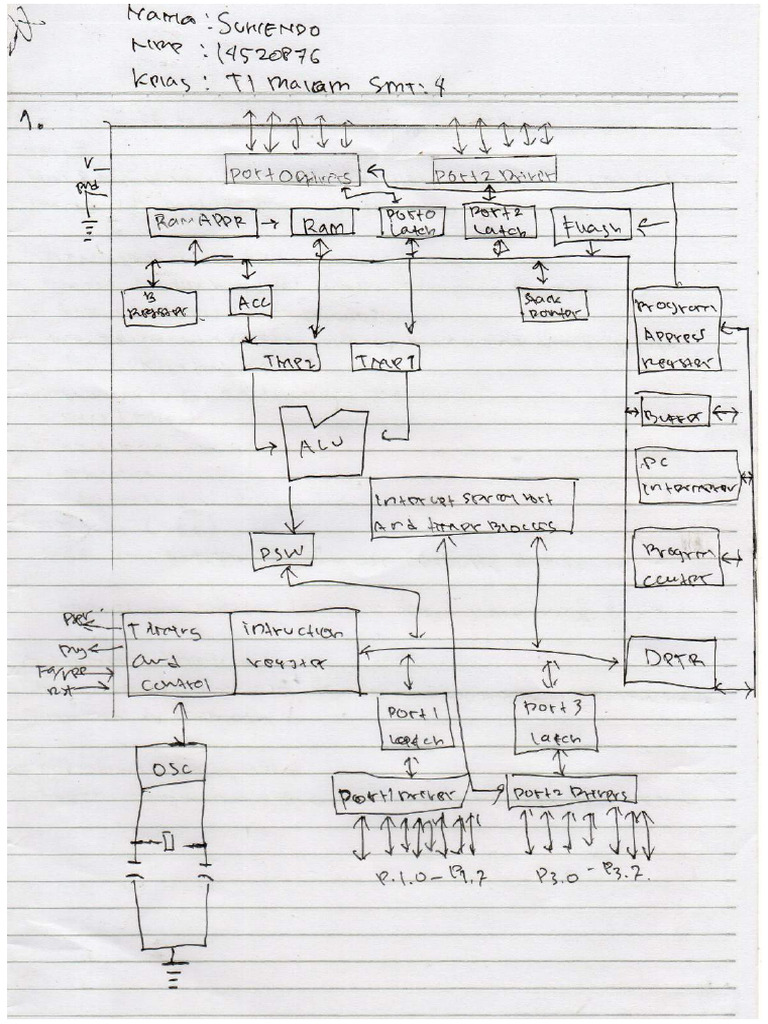 Nama : SUHENDO
NIRP : 14520876
Kelas : TI Malam Smt: 4
1.
V
gnd
Port 0 Drivers
Port 2 Driver
Ram ADDR
Ram
Port 0
Latch
Port 2
Latch
Flash
B
Register
ACC
Stack
Pointer
Program
Address
Register
TMP2
TMP1
ALU
Buffer
PC
Program
Counter
And Timer Blocks
PSW
Timers
and
control
intruction
register
Rst
DPTR
Port 1
Latch
Port 3
Latch
OSC
Port 1 Driver
Port 2 Drivers
P.1.0 - P1.7
P3.0 - P3.7.